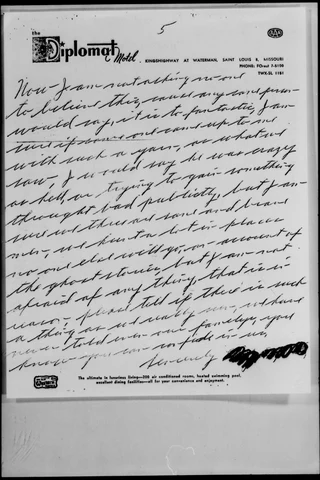 5
the Diplomat Motel
KINGSHIGHWAY AT WATERMAN, SAINT LOUIS 8, MISSOURI
PHONE: FOrest 7-
TWX-SL 1181
Now I am not asking no one
to believe this, cause any sane person
would say it is to fantastic, I am
sure if some one came up to me
with such a yarn, as what we
saw, I would say he was crazy
as hell, or trying to gain something
through bad publicity, but I am
sure we three are sane and brave
men, we hunt a lot in places
no one else will go, on account of
the ghost stories, but I am not
afraid of any thing that is in
reason - please tell if there is such
a thing as we really saw, we have
never told even our familys, you
know - you can confide in us
Sincerely
The ultimate in luxurious living—200 air conditioned rooms, heated swimming pool,
excellent dining facilities—all for your convenience and enjoyment.